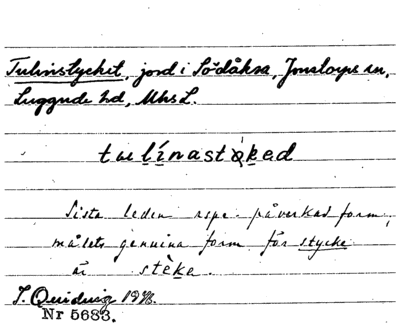 Tulinstycket, jord i Södåkra, Jonstorps sn,
Luggude hd, Mhs L.
tʉlínastøked
Sista leden rspr. påverkad form,
målets genuina form för stycke
är stèke.
Nr 5683.